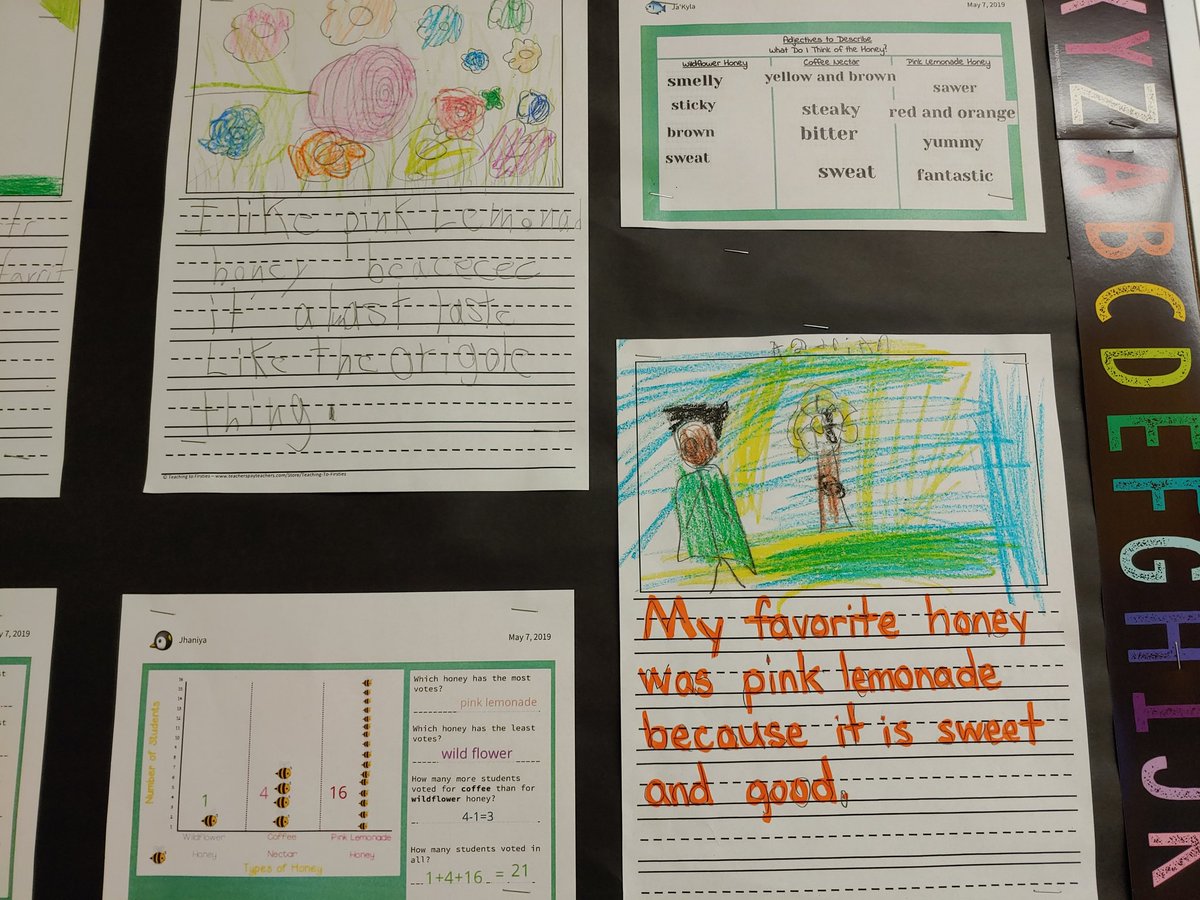 I like pink Lemonad
honey beacecec
it
taste
Like the origole
thing.
© Teaching to Firsties – www.teacherspayteachers.com/Store/Teaching-To-Firsties
Ja'Kyla
May 7, 2019
Adjectives to Describe
What Do I Think of the Honey?
Wildflower Honey
smelly
sticky
brown
sweat
Coffee Nectar
yellow and brown
steaky
bitter
sweat
Pink Lemonade Honey
sawer
red and orange
yummy
fantastic
y 7, 2019
Jhaniya
May 7, 2019
Number of Students
16
15
14
13
12
11
10
9
8
7
6
5
4
3
2
1
1
4
16
Wildflower
Honey
Coffee
Nectar
Pink Lemonade
Honey
Types of Honey
Which honey has the most
votes?
pink lemonade
Which honey has the least
votes?
wild flower
How many more students
voted for coffee than for
wildflower honey?
4-1=3
How many students voted in
all?
1+4+16 = 21
My favorite honey
was pink lemonade
because it is sweet
and good.
X Y Z
A B C D E F G H I J K